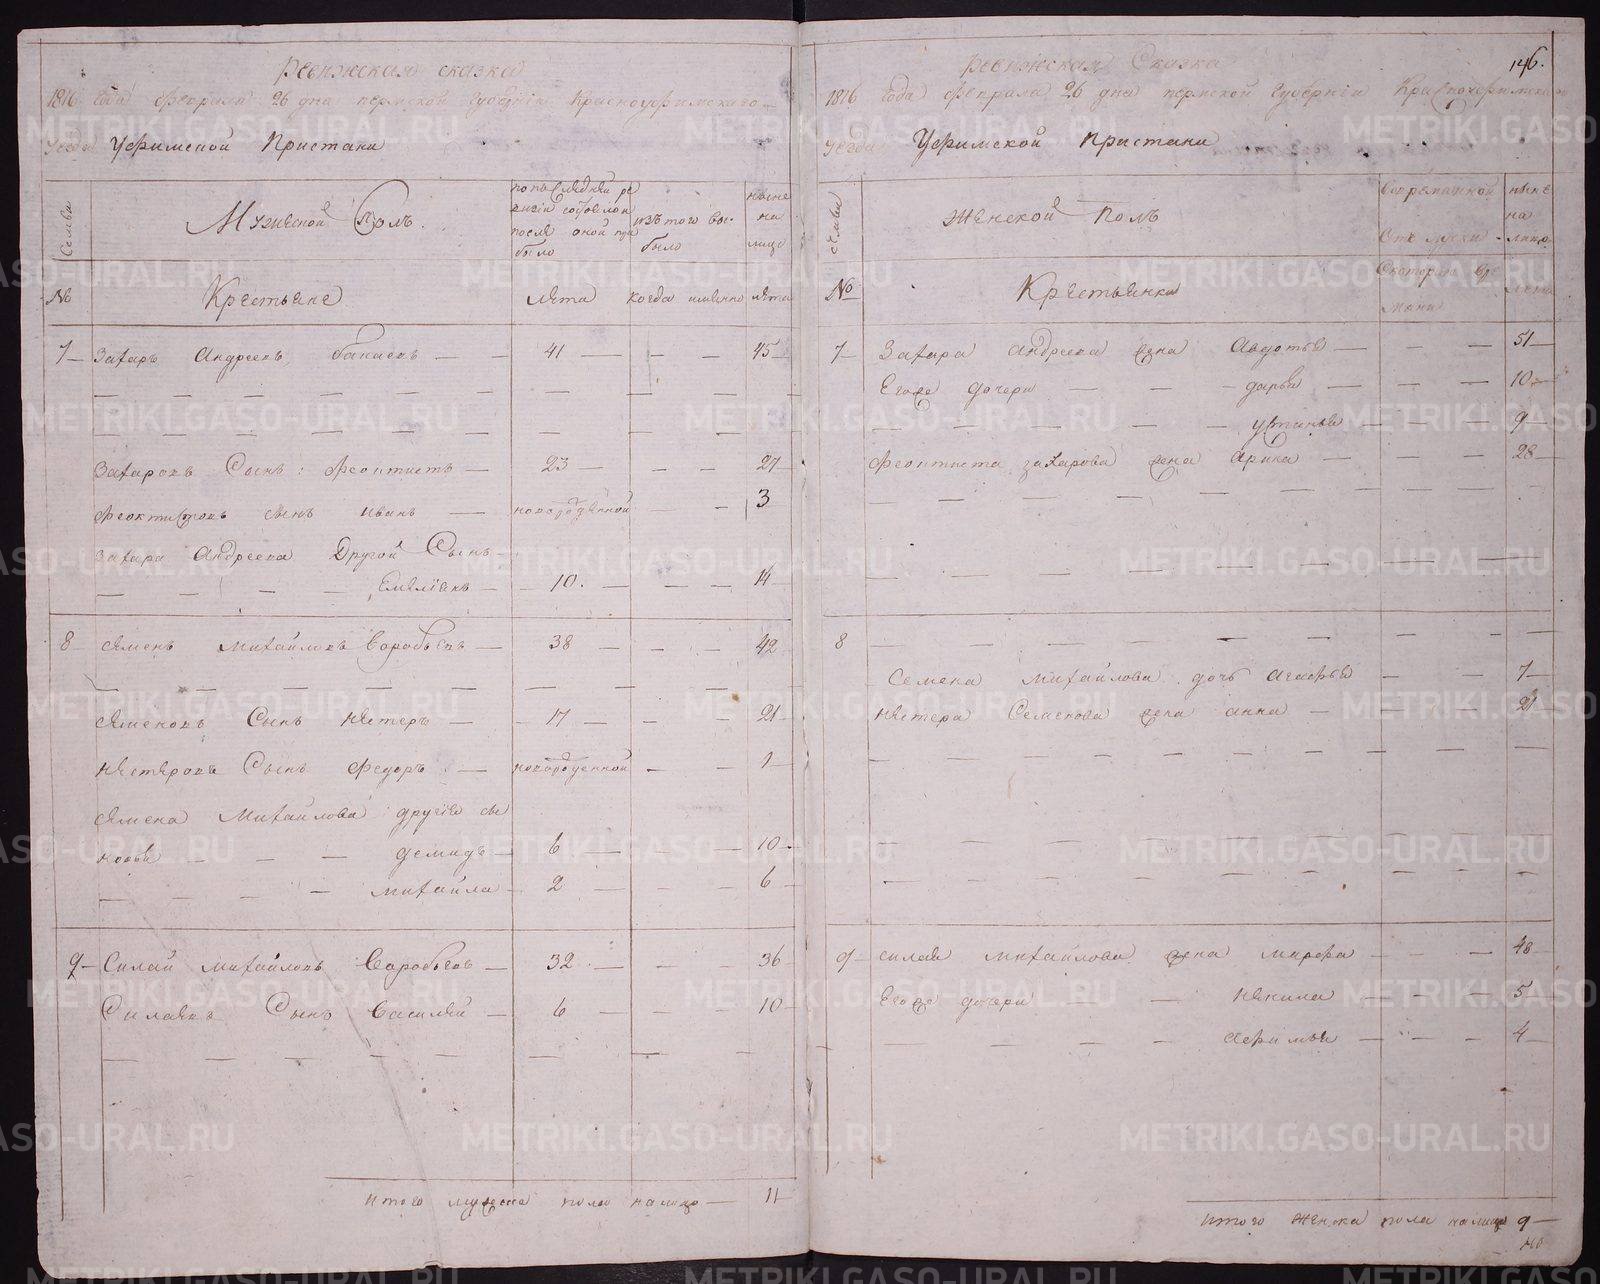 Ревижская сказка
1816 Года Февраля 26 дна пермской Губерніи Красноуфимскаго
Уезда Уфимской Пристани
Семьи
Мужеской Полъ.
по последней ре
визіи состояло и
после оной при
было
изъ того вы
было
ныне
на
лицо
№
Крестьяне
Лета
когда именно
лета
7 Захаръ Андреевъ бапаевъ 41 45
Захаровъ Сынъ: Феоптистъ 23 27
Феоктистовъ сынъ иванъ новорожденной 3
Захара Андреева Другой Сынъ
Емелянъ 10. 14
8 Семенъ михайловъ Воробьевъ 38 42
Семеновъ Сынъ нестеръ 17 21
нестеровъ Сынъ федоръ новорожденной 1
Семена Михайлова другие сы
новья демидъ 6 10
михайла 2 6
9 Силай михайловъ Воробьевъ 32 36
Силаевъ Сынъ Василей 6 10
итого мужеска пола налицо 11
146.
Ревижская Сказка
1816 года Февраля 26 дна пермской Губерніи Красноуфимскаго
Уезда Уфимской Пристани
Семьи
Женской полъ
Во временной
Отлучки
ныне
на
лицо
№
Крестьянки
Скоторого вре
мени
лета
7 Захара андреева жена Авдотья 51
Егоже дочери дарья 10
устинья 9
Феоптиста захарова жена Арина 28
8
Семена михайлова дочь агафья 7
нестера Семенова жена анна 21
9 силая михайлова жена марфа 48
Егоже дочери ненила 5
афимья 4
итого Женска пола налицо 9